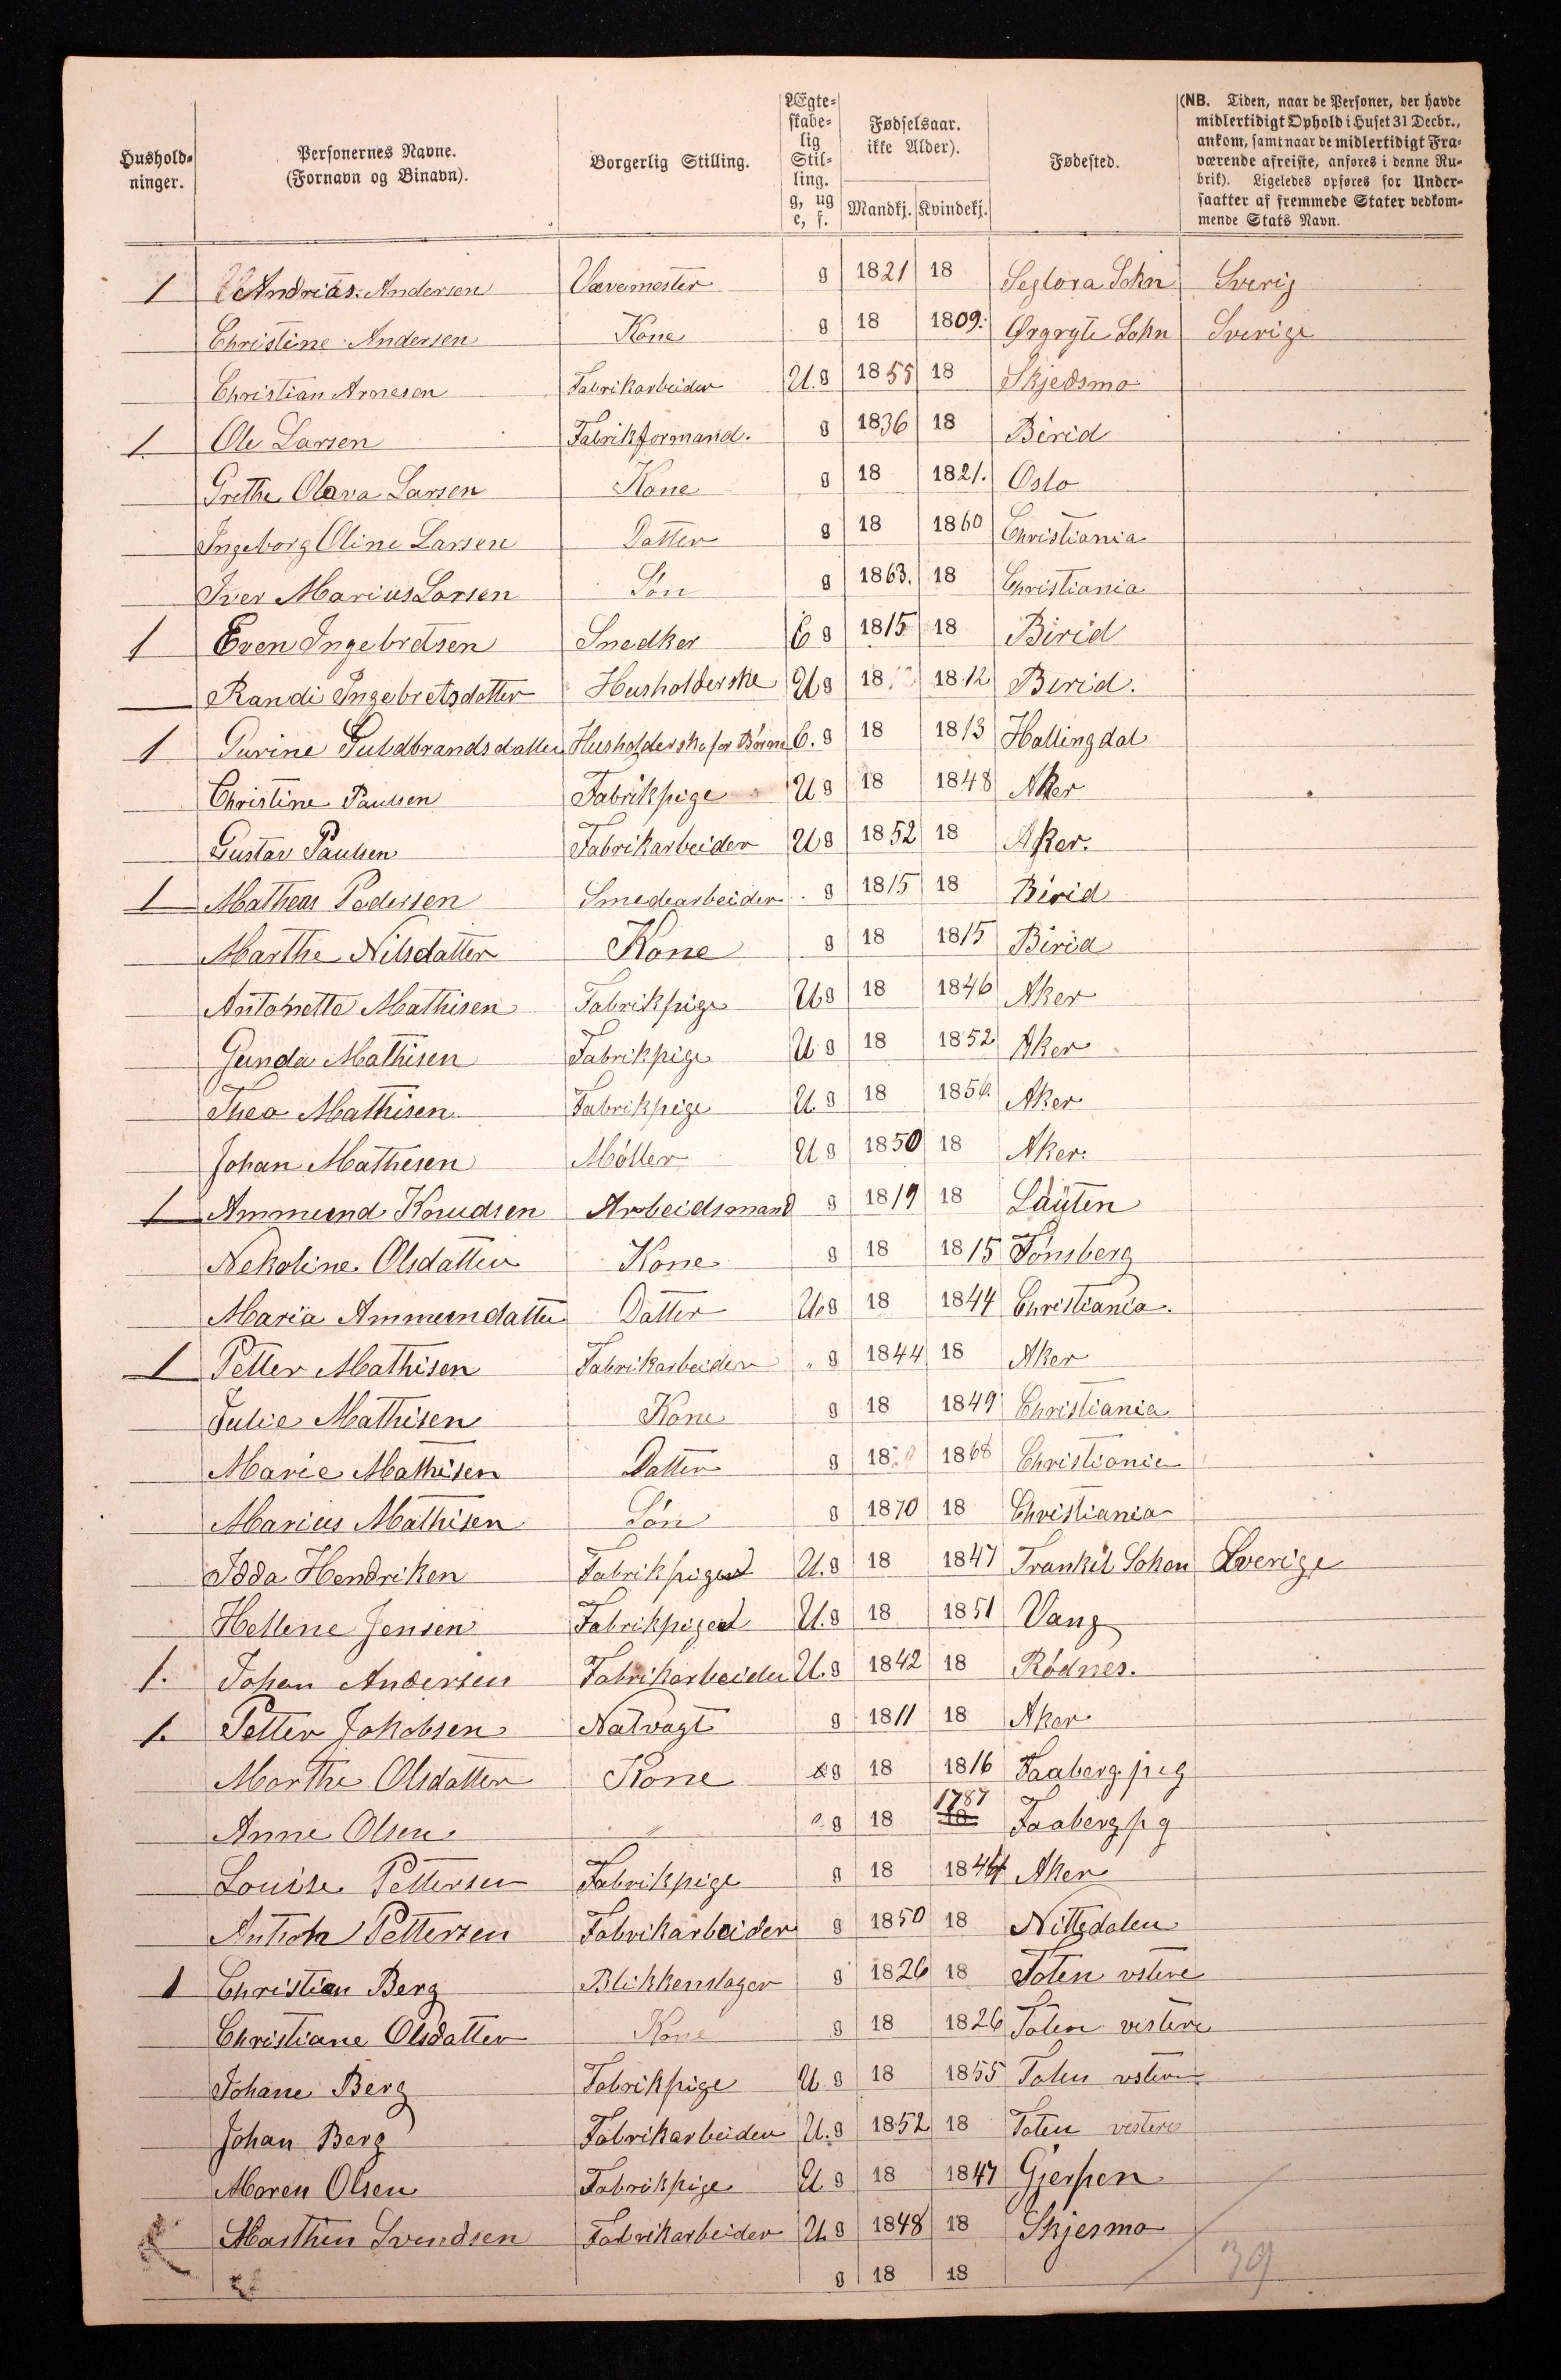 Hushold-
ninger.
Personernes Navne.
(Fornavn og Binavn).
Borgerlig Stilling.
Ægte-
skabe-
lig
Stil-
ling.
g, ug
e, f.
Fødselsaar.
ikke Alder).
Mandkj. Kvindekj.
Fødested.
(NB. Tiden, naar de Personer, der havde
midlertidigt Ophold i Huset 31 Decbr.,
ankom, samt naar de midlertidigt Fra-
værende afreiste, anføres i denne Ru-
brik). Ligeledes opføres for Under-
saatter af fremmede Stater vedkom-
mende Stats Navn.
1 Andrias Andersen Vævemester g 1821 18 Seglora Sokn Sverig
Christine Andersen Kone g 18 1809. Ørgryte Sokn Sverige
Christian Arnesen Fabrikarbeider U.g 1855 18 Skjedsmo
1. Ole Larsen Fabrikformand. g 1836 18 Birid
Grethe Olava Larsen Kone g 18 1821. Oslo
Ingeborg Oline Larsen Datter g 18 1860 Christiania
Iver Marius Larsen Søn g 1863. 18 Christiania
1 Even Ingebretsen Snedker E g 1815 18 Birid
Randi Ingebretsdatter Husholderske Ug 18 1812 Birid.
1 Gurine Guldbrandsdatter Husholderske for Børn E. g 18 1813 Hallingdal
Christine Paulsen Fabrikpige U g 18 1848 Aker
Gustav Paulsen Fabrikarbeider Ug 1852 18 Aker.
1 Matheas Pedersen Smedearbeider g 1815 18 Birid
Marthe Nilsdatter Kone g 18 1815 Birid
Antonette Mathisen Fabrikpige Ug 18 1846 Aker
Gunda Mathisen Fabrikpige U g 18 1852 Aker
Thea Mathisen Fabrikpige U g 18 1856. Aker
Johan Mathisen Møller U g 1850 18 Aker.
1 Ammund Knudsen Arbeidsmand g 1819 18 Løiten
Nekoline Olsdatter Kone g 18 1815 Tønsberg
Maria Ammundatter Datter U.g 18 1844 Christiania.
1 Petter Mathisen Fabrikarbeider " g 1844 18 Aker
Julie Mathisen Kone g 18 1849 Christiania
Marie Mathisen Datter g 18 1868 Christiania
Marius Mathisen Søn g 1870 18 Christiania
Idda Hendriken Fabrikpige U.g 18 1847 Trankil Sokn Sverige
Hellene Jensen Fabrikpige U.g 18 1851 Vang
1. Johan Andersen Fabrikarbeider U.g 1842 18 Rødnes.
1. Petter Jakobsen Natvagt g 1811 18 Aker
Marthe Olsdatter Kone g 18 1816 Faaberg p g
Anne Olsen " g 18 1787 Faaberg p g
Louise Pettersen Fabrikpige g 18 1844 Aker
Anton Pettersen Fabrikarbeider g 1850 18 Nittedalen
1 Christian Berg Blikkenslager g 1826 18 Toten vstere
Christiane Olsdatter Kone g 18 1826 Toten vestere
Johane Berg Fabrikpige U. g 18 1855 Toten vstere
Johan Berg Fabrikarbeider U.g 1852 18 Toten vestere
Maren Olsen Fabrikpige U g 18 1847 Gjerpen
Marthin Svendsen Fabrikarbeider U.g 1848 18 Skjesmo
g 18 18
39